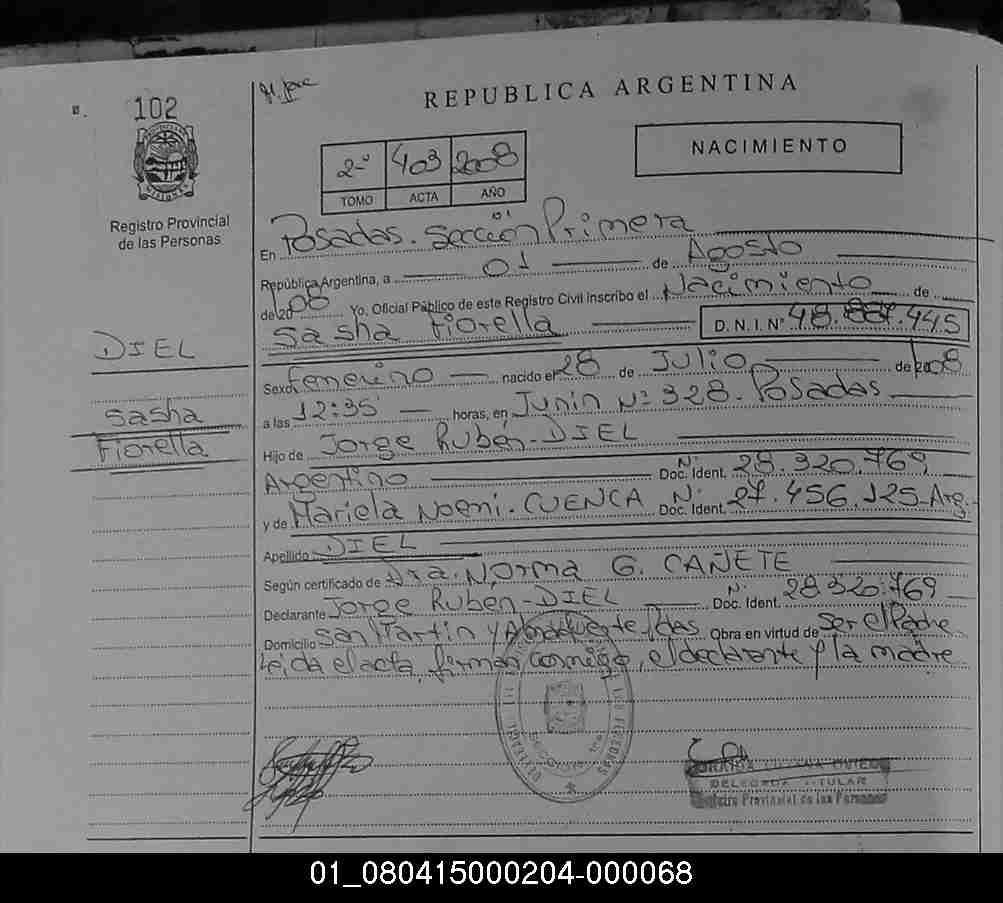 102
REPUBLICA ARGENTINA
2º 403 2008
TOMO ACTA AÑO
NACIMIENTO
Registro Provincial
de las Personas
En Posadas. Sección Primera
República Argentina, a 01 de Agosto
de 2008 Yo, Oficial Público de este Registro Civil inscribo el Nacimiento de
Sasha Fiorella D. N. I. N° 48.887.445
DIEL
Sasha
Fiorella
Sexo Femenino nacido el 28 de Julio de 2008
a las 12:35 horas, en Junin Nº 328. Posadas
Hijo de Jorge Rubén DIEL
Argentino Doc. Ident. Nº 28.320.769
y de Mariela Noemi. CUENCA Doc. Ident. Nº 27.456.125-Arg.
Apellido DIEL
Según certificado de Dra. Norma G. CAÑETE
Declarante Jorge Rubén DIEL Doc. Ident. Nº 28320.769
Domicilio San Martin y Obra en virtud de Ser el Padre
Leida el acta, firman conmigo, el declarante y la madre
DELEGADA TITULAR
Registro Provincial de las Personas
01_080415000204-000068